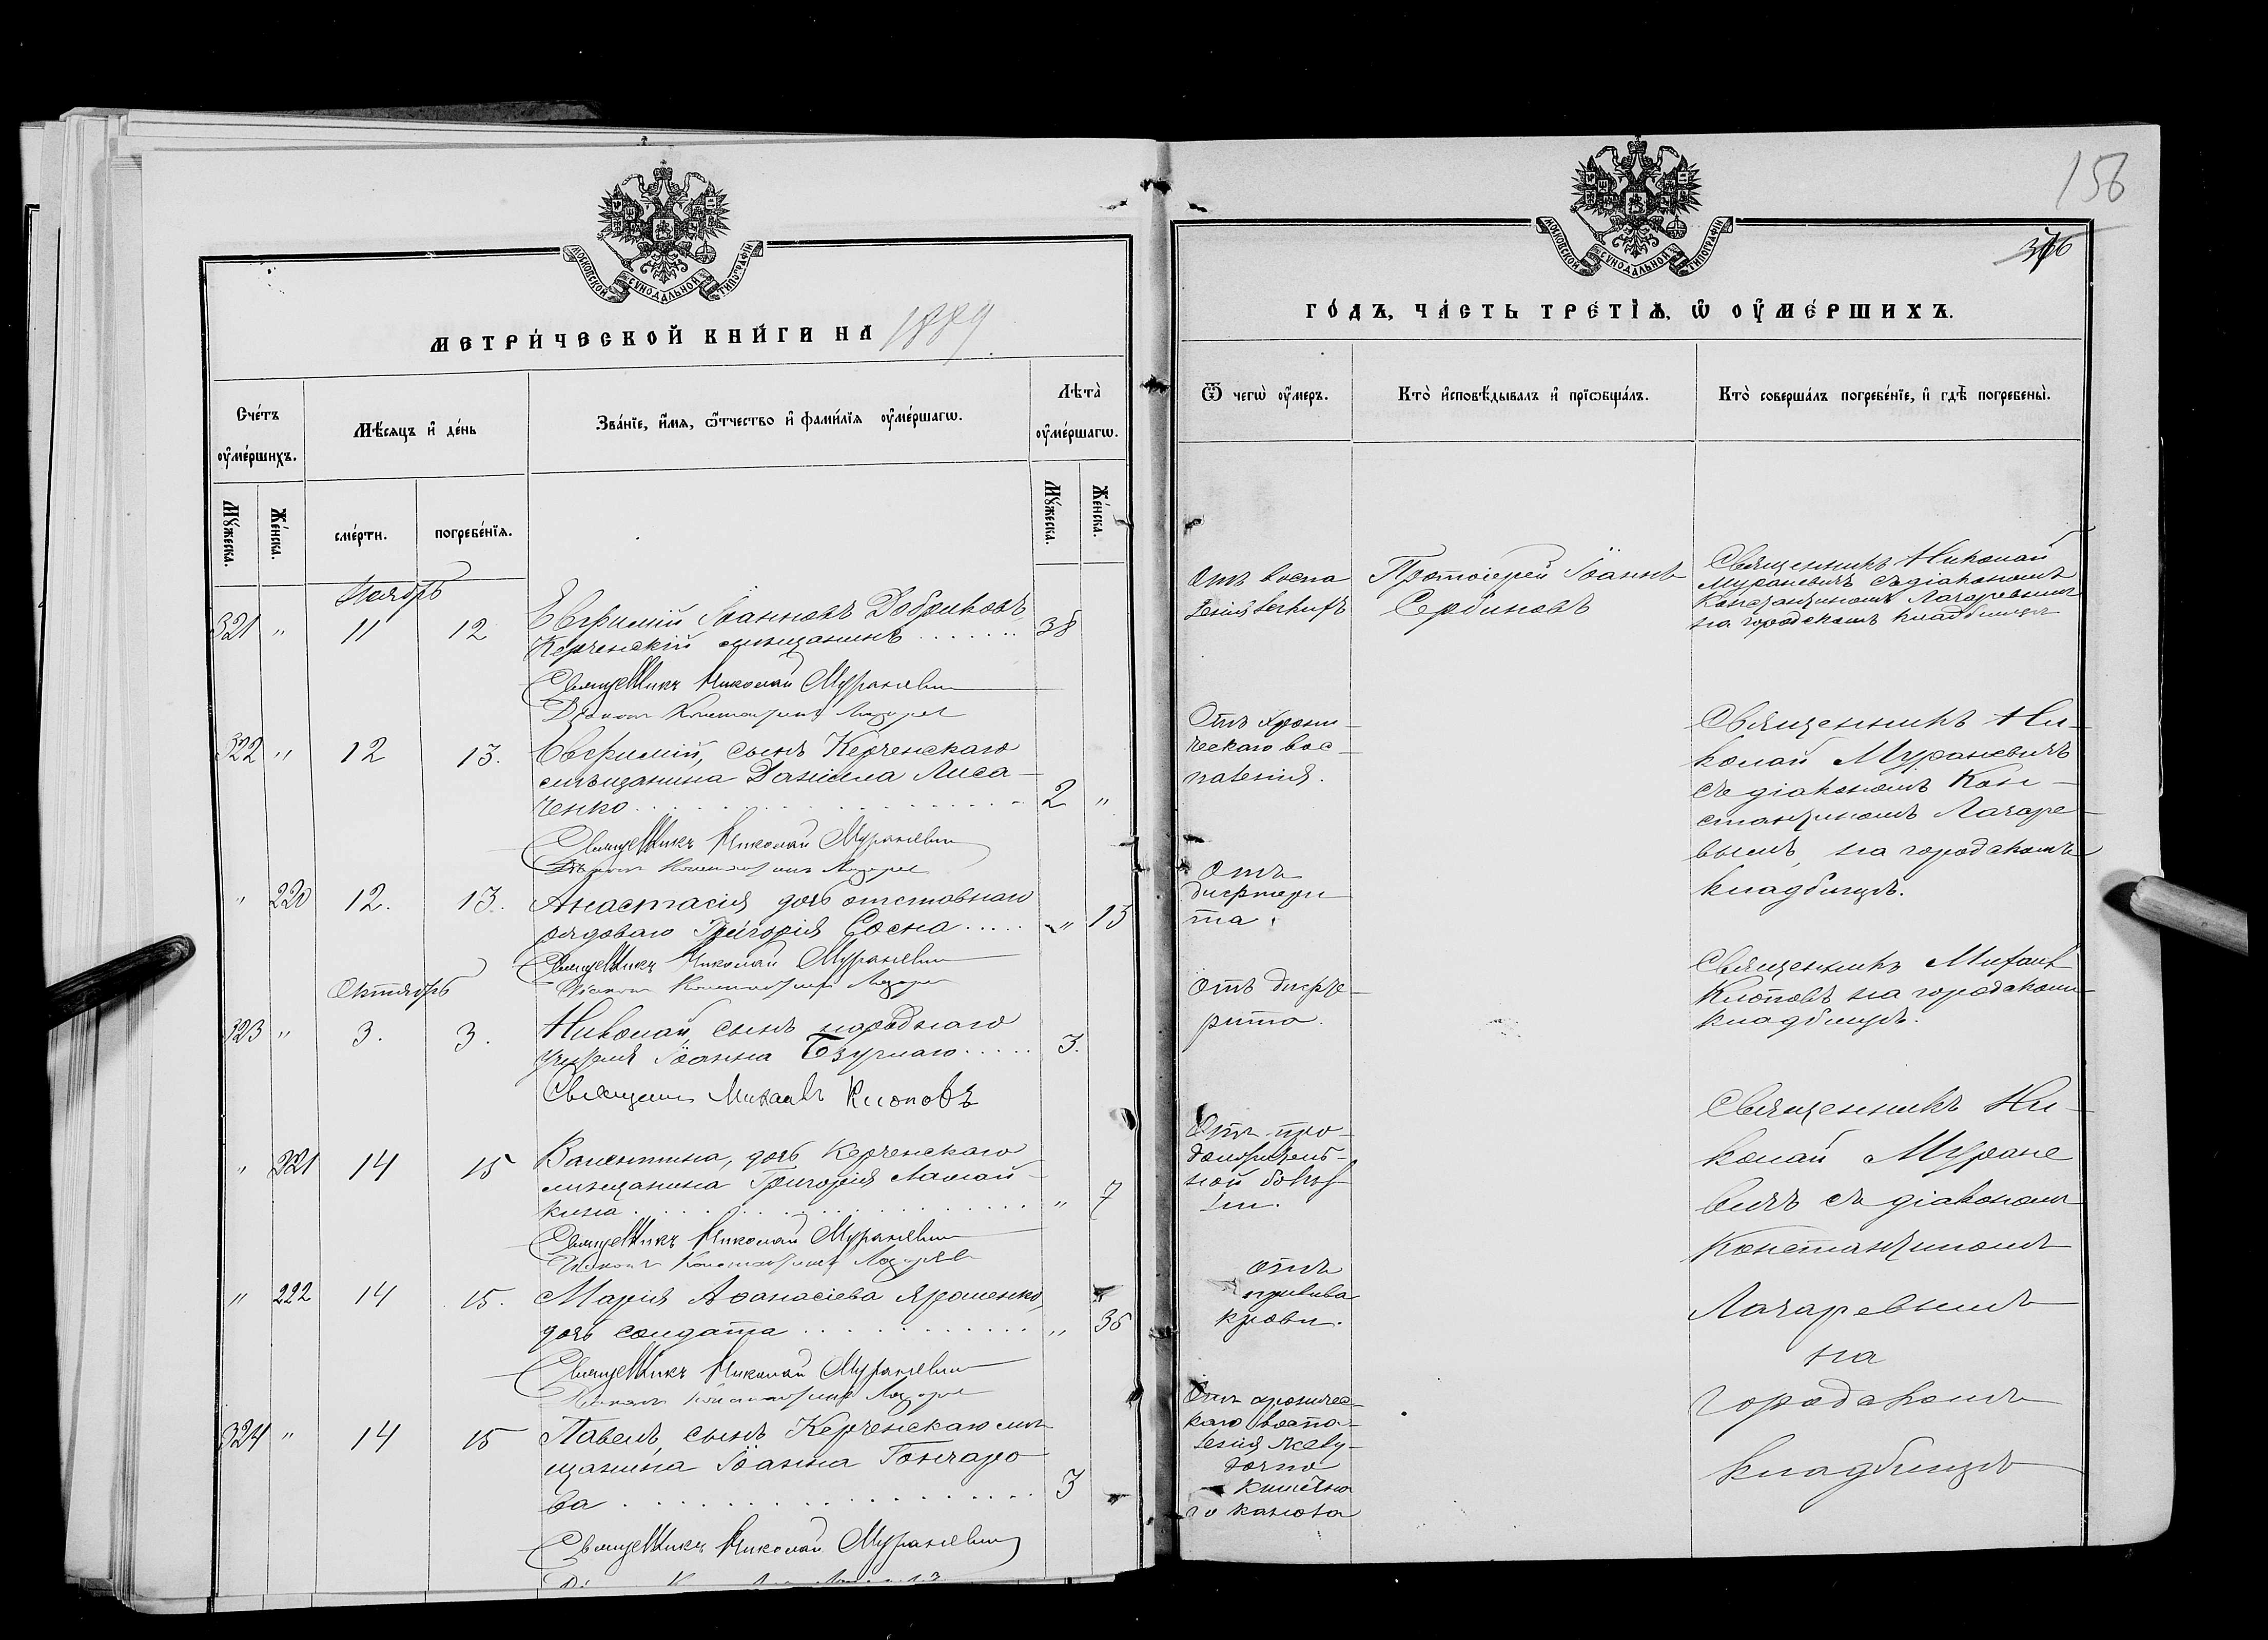 МОСКОВСКОЙ СѴНОДАЛЬНОЙ ТИПОГРАФІИ
МЕТРИ́ЧЕСКОЙ КНИ́ГИ НА 1889
Сче́тъ
оу҆ме́ршихъ.
Мѣ́сяцъ и҆ де́нь
Зва́нїе, и҆́мя, ѻ҆́тчество и҆ фами́лїя оу҆ме́ршагѡ.
Лѣта̀
оу҆ме́ршагѡ.
Мꙋ́жеска.
Же́нска.
сме́рти.
погребе́нїя.
Мꙋ́жеска.
Же́нска.
Ноябрь
321 " 11 12 Евфимій Іоанновъ Добриковъ,
Керченскій мѣщанинъ . . . . . . . 38
Священникъ Николай Мураневич
Діаконъ Константинъ Лазарев
322 " 12 13. Евфимій, сынъ Керченскаго
мѣщанина Даніила Лиса-
ченко . . . . . . . . . . . . 2 "
Священникъ Николай Мураневич
Діаконъ Константинъ Лазарев
" 220 12. 13. Анастасія дочь отставнаго
рядоваго Григорія Сосна . . . . . " 13
Священникъ Николай Мураневич
Діаконъ Константинъ Лазарев
Октябрь
323 " 3. 3. Николай, сынъ народнаго
учителя Іоанна . . . . . 3.
Священникъ Михаилъ Клоповъ
" 221 14 15 Валентина, дочь Керченскаго
мѣщанина Григорія Ламай-
кина . . . . . . . . . . . . . " 7
Священникъ Николай Мураневич
Діаконъ Константинъ Лазарев
" 222 14 15. Марія Аѳанасіева Ярошенко,
дочь солдата . . . . . . . . . . . " 36
Священникъ Николай Мураневич
Діаконъ Константинъ Лазарев
324 " 14 15 Павелъ, сынъ Керченскаго мѣ-
щанина Іоанна Гончаро
ва . . . . . . . . . . . . . . . . 3 "
Священникъ Николай Мураневич
156
МОСКОВСКОЙ СѴНОДАЛЬНОЙ ТИПОГРАФІИ
ГО́ДЪ, ЧА́СТЬ ТРЕ́ТЇѦ, Ѡ҆ ОУ҆МЕ́РШИХЪ.
Ѿ чегѡ̀ оу҆́меръ.
Кто̀ и҆сповѣ́дывалъ и҆ прїѡбща́лъ.
Кто̀ соверша́лъ погребе́нїе, и҆ гдѣ̀ погребены̀.
Отъ воспа
ленія легкихъ
Протоіерей Іоаннъ
Сербиновъ
Священникъ Николай
Мураневичъ съ діакономъ
Константиномъ Лазаревымъ
на городскомъ кладбищѣ
Отъ хрони-
ческаго вос-
паленія.
Священникъ Ни-
колай Мураневичъ
съ діакономъ Кон-
стантиномъ Лазаре-
вымъ, на городскомъ
кладбищѣ.
Отъ
дифтери
та.
Отъ дифте-
рита.
Священникъ Михаилъ
Клоповъ на городскомъ
кладбищѣ.
Отъ про-
должитель-
ной болѣз
ни.
Священникъ Ни-
колай Муране
вичъ съ діакономъ
Константиномъ
Лазаревымъ
на
городскомъ
кладбищѣ
отъ
прилива
крови.
Отъ хроничес-
каго воспа-
ленія желу-
дочно
кишечна
го канала